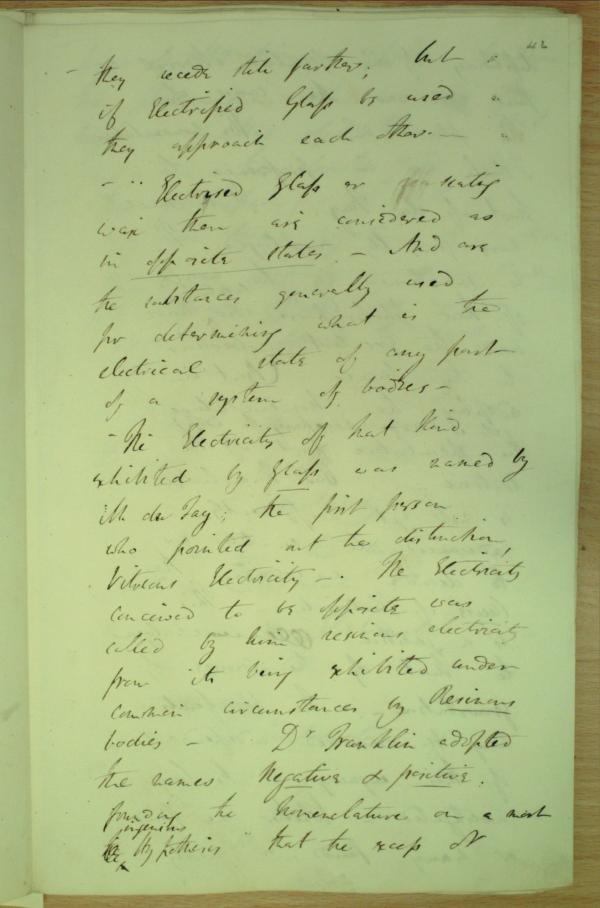 they recede still farther; but
if Electrified Glass be used
they approach each other. —
— Electrised Glass or sealing
wax then are considered as
in opposite states. — And are
the substances generally used
for determining what is the
electrical state of any part
of a system of bodies —
— The Electricity of that kind
exhibited by Glass was named by
M. du Fay; the first person
who pointed out the distinction,
Vitreous Electricity —. The Electricity
conceived to be opposite was
called by him resinous electricity
from its being exhibited under
common circumstances by Resinous
bodies — Dr Franklin adopted
the names Negative & positive.
founding the Nomenclature on a most
ingenious
Hypothesis "that the excess of